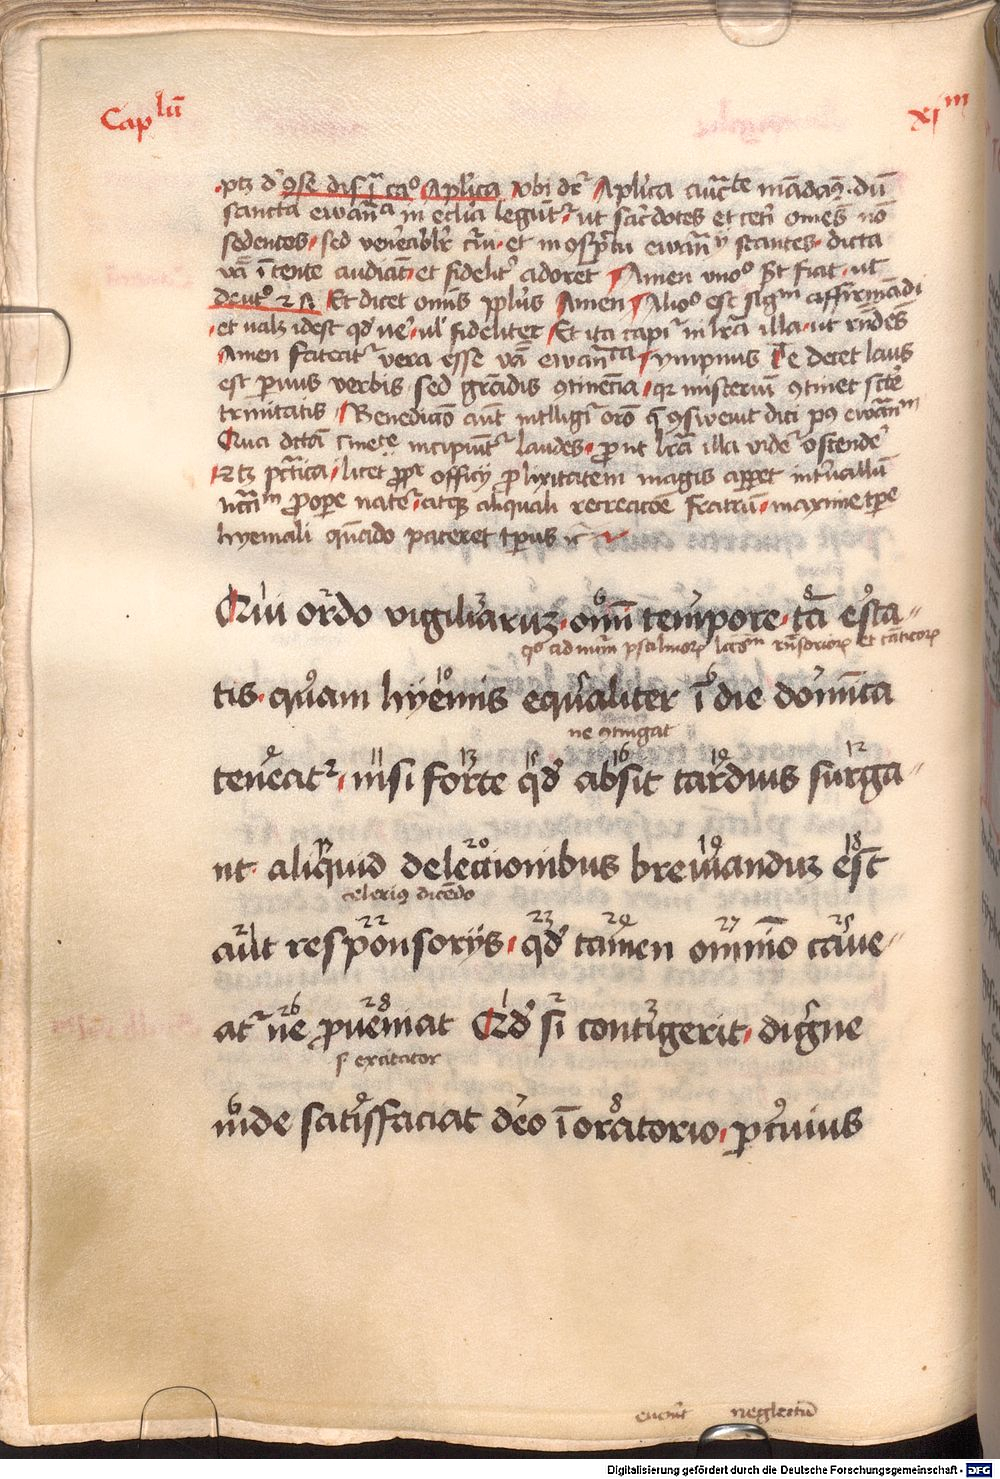 Caplũ
XIᵐ
ptz d' ꝯse dis. i. caº Aplica vbi dr̃ Aplica auctᵗᵉ mãdamꝰ. dũ
sancta ewãn̄ᵃ in ecl'ia legũtʳ ut sac̃dotes et cet'i om̃es nõ
sedentes sed ven'eabl'r c̃ui et in ꝯsp̃tu ewãn̄ij stantes dicta
et fidelit' adoret Amen vnoº. st fiat. ut
deutº 2 Et dicet omĩs ppl'us Amen Alioº est sigᵐ affirmãdi
et ualz idest qd' ue' ul' fideliter Et ita capiʳ in lr̃a illa ut rñdes
Amen fateatʳ vera esse ewãn̄ᵗᵃ ympnus Te decet laus
est paruus verbis sed grãdis ꝯtinẽcia qz misteriũ ꝯtinet scte'
trinitatis Benediccõ aut intlligiʳ orõ q̃ ꝯsweuit dici pꝰ ewãn̄ᵐ
Qua dcta incipiũtʳ laudes pro ut lr̃a illa videʳ ostende'
2 tz pc̃tica licet propter officij prolixitatem magis apparet int'uallũ
propere natʳe atqz aliquali recreacõe fr̃atrũ maxime tp̃e
hyemali qũado pateret tp̃us
Qui ordo vigiliaruz om̃i tempore tã esta-
qº ad nũm psalmorꝝ lc̃onũ rñsoriorꝝ et cãticorꝝ
tis quam hyemis equaliter ĩ die domĩca
ne ꝯtingat
teneatʳ nisi forte qd' absit tardius surga-
nt aliquid de lectionibus breuianduz est
celeriꝰ dicẽdo
aut responsorijs qd' tamen omnĩo caue-
atʳ ne proueniat Qd' si contigerit digne
s excitator
inde satisfaciat deo ĩ oratorio p cuius
euen'it neglectũ
Digitalisierung gefördert durch die Deutsche Forschungsgemeinschaft - DFG